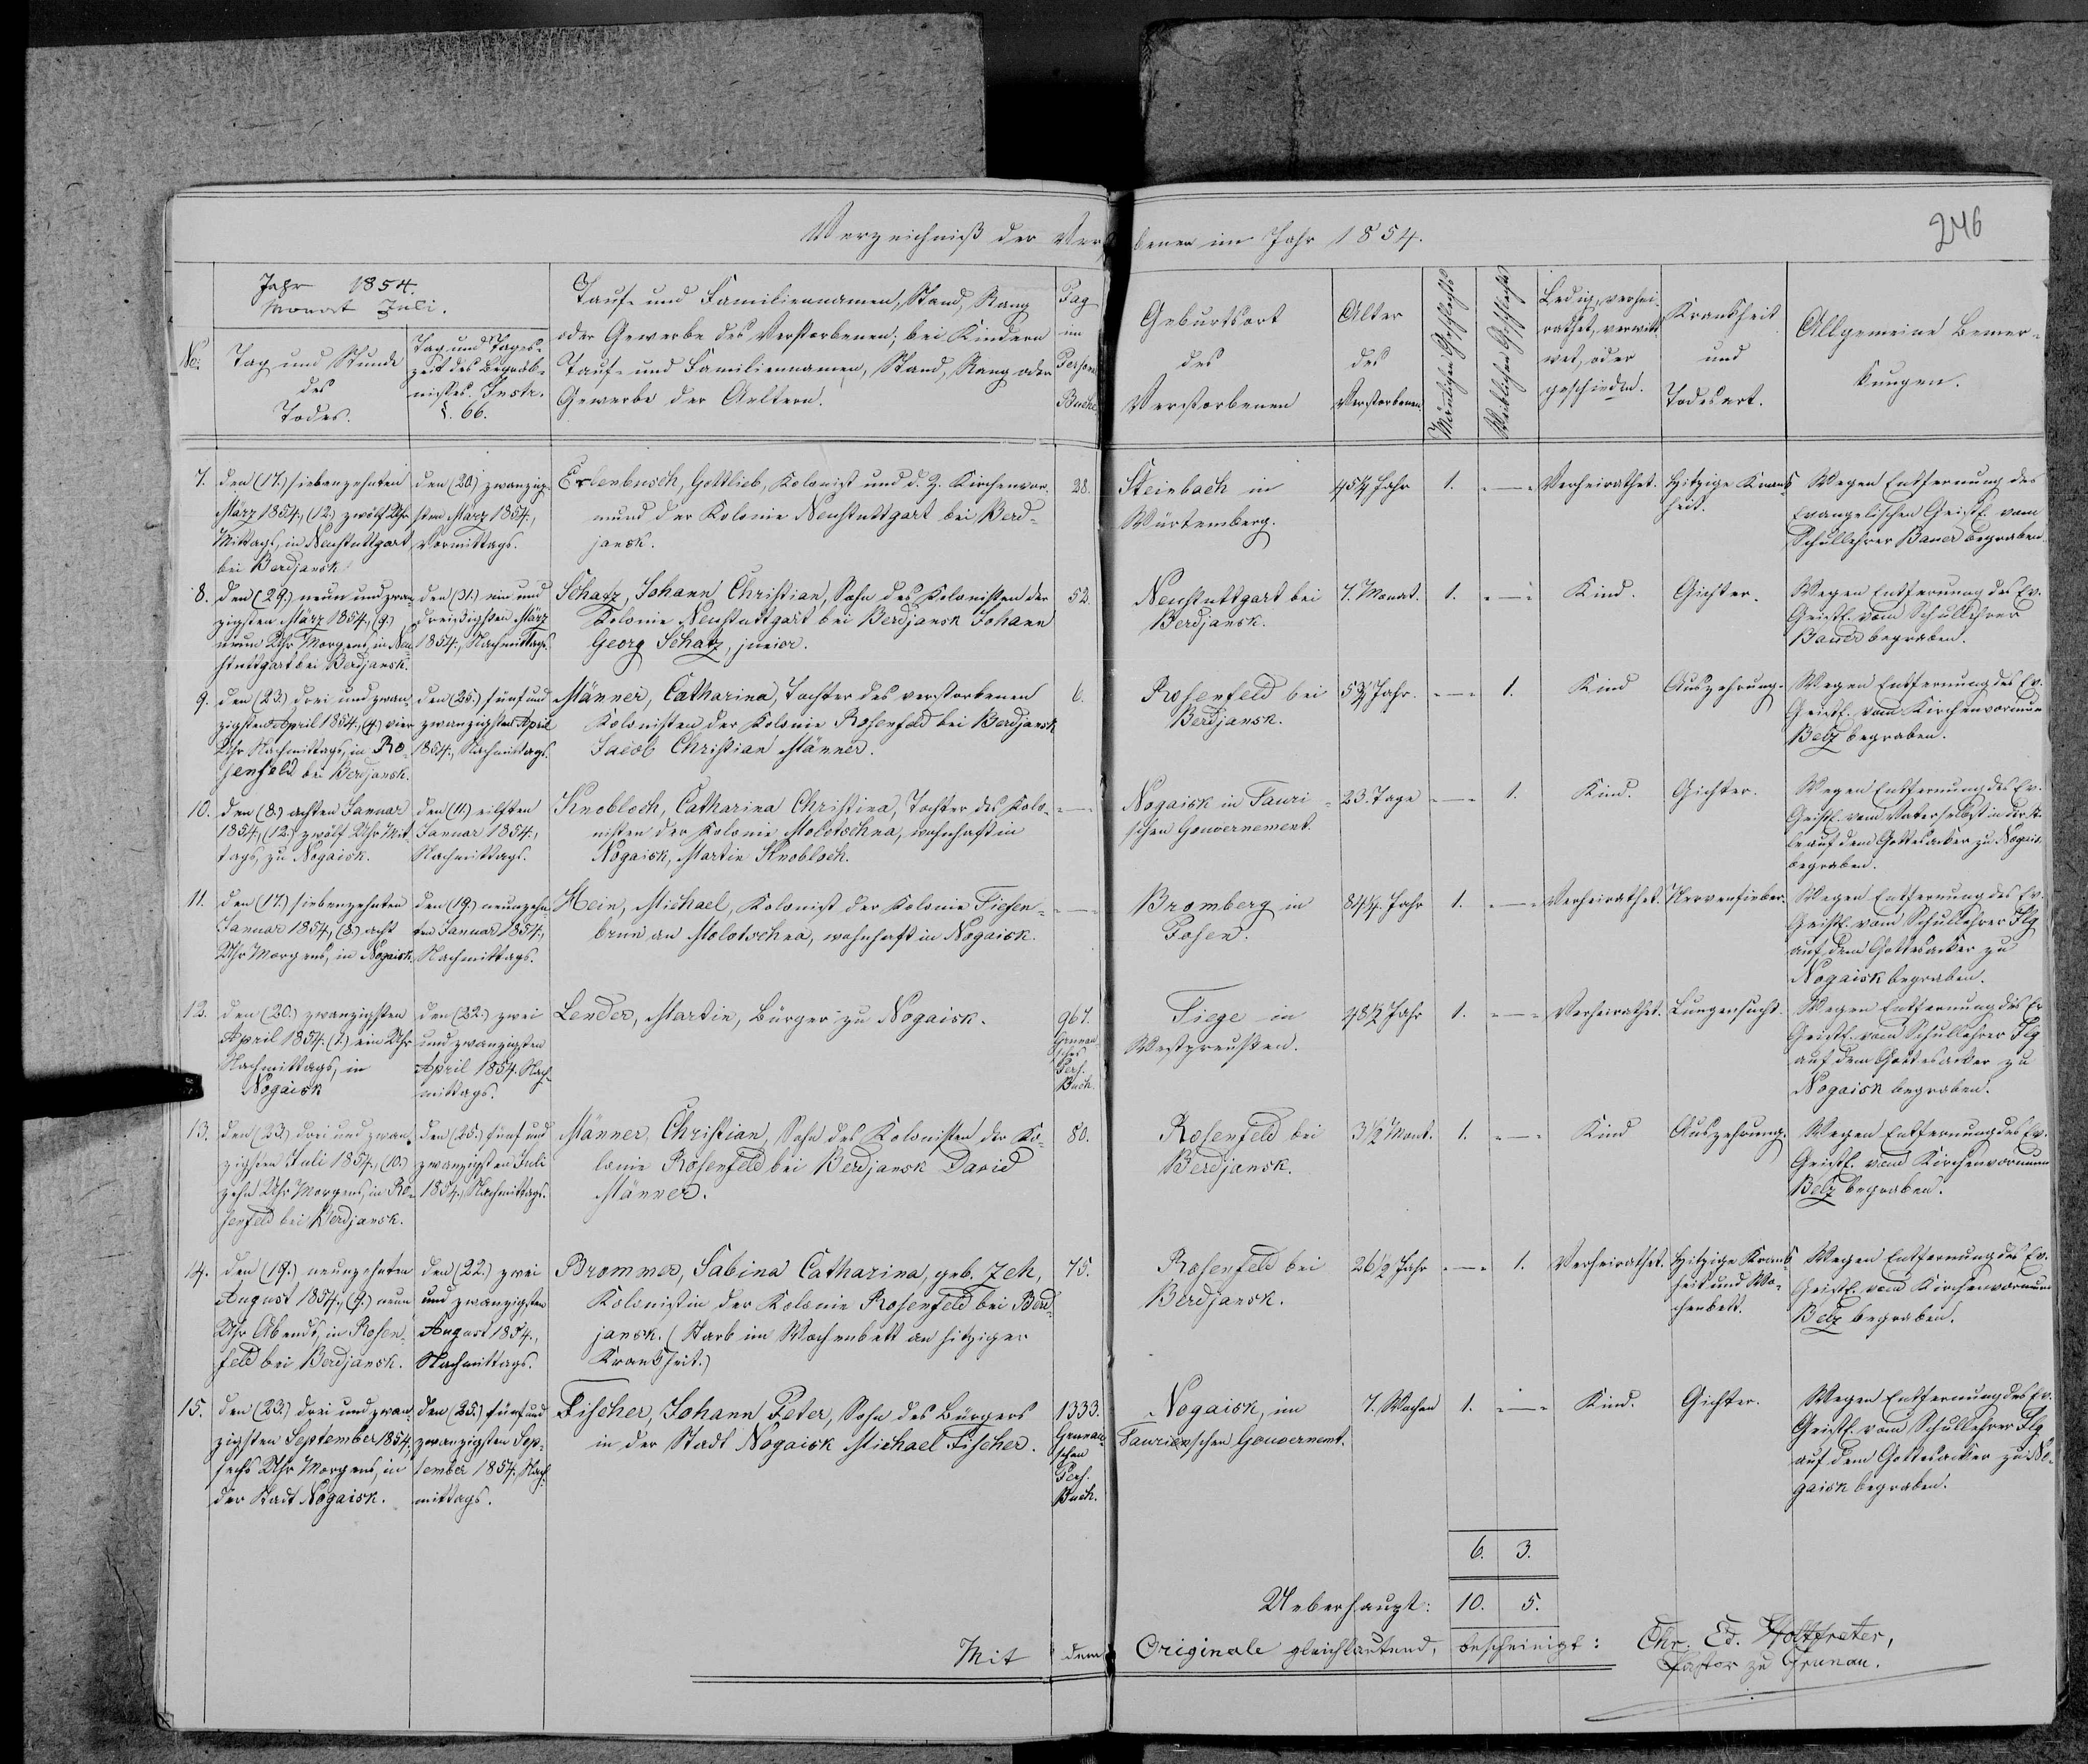 Verzeichniß der Ver
benen im Jahr 1854.
246
No:
Jahr 1854.
Monat Juli.
Tag und Stunde
des
Todes.
Tag und Tages-
zeit des Begräb-
nisses. Instr.
§. 66.
Tauf- und Familiennamen, Stand, Rang
oder Gewerbe des Verstorbenen; bei Kindern
Tauf- und Familiennamen, Stand, Rang oder
Gewerbe der Aeltern.
Pag
im
Person
Buche
Geburtsort
des
Verstorbenen
Alter
des
Verstorbenen
Männlichen Geschlechts
Weiblichen Geschlechts
Ledig, verhei-
rathet, verwitt-
wet, oder
geschieden.
Krankheit
und
Todesart.
Allgemeine Bemer-
kungen.
7.
den (17.) siebenzehnten
März 1854., (12.) zwölf Uhr
Mittags, in Neustuttgart
bei Berdjansk
den (20.) zwanzig-
sten März 1854.,
Vormittags.
Erlenbusch, Gottlieb, Kolonist und d. Z. Kirchenvor-
mund der Kolonie Neustuttgart bei Berd-
jansk.
28.
Steinbach in
Würtemberg.
45¼ Jahr
1.
Verheirathet.
Hitzige Krank
heit.
Wegen Entfernung des
Evangelischen Geistl. vom
Schullehrer Bauer begraben.
8.
den (29.) neun und zwan-
zigsten März 1854., (9.)
neun Uhr Morgens, in Neu-
stuttgart bei Berdjansk.
den (31.) ein und
dreißigsten März
1854., Nachmittags.
Schatz, Johann Christian, Sohn des Kolonisten der
Kolonie Neustuttgart bei Berdjansk Johann
Georg Schatz, junior.
52.
Neustuttgart bei
Berdjansk.
7. Monat.
1.
Kind.
Gichter.
Wegen Entfernung des Ev.
Geistl. vom Schullehrer
Bauer begraben.
9.
den (23.) drei und zwan-
zigsten April 1854., (4.) vier
Uhr Nachmittags, in Ro-
senfeld bei Berdjansk.
den (25.) fünf und
zwanzigsten April
1854., Nachmittags.
Männer, Catharina, Tochter des verstorbenen
Kolonisten der Kolonie Rosenfeld bei Berdjansk
Jacob Christian Männer.
6.
Rosenfeld bei
Berdjansk.
5¾ Jahr.
1.
Kind
Auszehrung.
Wegen Entfernung des Ev.
Geistl. vom Kirchenvormun
Belz begraben.
10.
den (8.) achten Januar
1854., (12.) zwölf Uhr Mit-
tags, zu Nogaisk.
den (11.) eilften
Januar 1854.,
Nachmittags.
Knobloch, Catharina Christina, Tochter des Kolo-
nisten der Kolonie Molotschna, wohnhaft in
Nogaisk, Martin Knobloch.
Nogaisk in Tauri-
schen Gouvernement.
23. Tage
1.
Kind.
Gichter.
Wegen Entfernung des Ev.
Geistl. vom Vater selbst
auf dem Gottesacker zu Nogais.
begraben.
11.
den (17.) siebenzehnten
Januar 1854., (8.) acht
Uhr Morgens, in Nogaisk.
den (19.) neunzehn-
ten Januar 1854.,
Nachmittags.
Hein, Michael, Kolonist der Kolonie Tiefen-
brun an Molotschna, wohnhaft in Nogaisk.
Bromberg in
Posen.
84¼ Jahr
1.
Verheirathet.
Nervenfieber.
Wegen Entfernung des Ev.
Geistl. vom Schullehrer Ilg
auf dem Gottesacker zu
Nogaisk begraben.
12.
den (20.) zwanzigsten
April 1854., (1.) ein Uhr
Nachmittags, in
Nogaisk
den (22.) zwei
und zwanzigsten
April 1854. Nach-
mittags.
Lender, Martin, Bürger zu Nogaisk.
967.
Grunau
sches
Pers.
Buch.
Tiege in
Westpreußen.
48½ Jahr
1.
Verheirathet.
Lungensucht.
Wegen Entfernung des Ev.
Geistl. vom Schullehrer Ilg
auf dem Gottesacker zu
Nogaisk begraben.
13.
den (23.) drei und zwan-
zigsten Juli 1854., (10.)
zehn Uhr Morgens, in Ro-
senfeld bei Berdjansk.
den (25.) fünf und
zwanzigsten Juli
1854., Nachmittags.
Männer, Christian, Sohn des Kolonisten der Ko-
lonie Rosenfeld bei Berdjansk David
Männer.
80.
Rosenfeld bei
Berdjansk.
3½ Monat.
1.
Kind
Auszehrung.
Wegen Entfernung des Ev.
Geistl. vom Kirchenvormun
Belz begraben.
14.
den (19.) neunzehnten
August 1854., (9.) neun
Uhr Abends, in Rosen-
feld bei Berdjansk.
den (22.) zwei
und zwanzigsten
August 1854.,
Nachmittags.
Brommer, Sabina Catharina, geb. Zeh,
Kolonistin der Kolonie Rosenfeld bei Berd-
jansk. (Starb im Wochenbett an hitziger
Krankheit.)
75.
Rosenfeld bei
Berdjansk.
26½ Jahr
1.
Verheirathet.
Hitzige Krank
heit und Wo-
chenbett.
Wegen Entfernung des Ev.
Geistl. vom Kirchenvormun
Belz begraben.
15.
den (23.) drei und zwan-
zigsten September 1854.,
sechs Uhr Morgens, in
der Stadt Nogaisk.
den (25.) fünf und
zwanzigsten Sep-
tember 1854., Nach-
mittags.
Fischer, Johann Peter, Sohn des Bürgers
in der Stadt Nogaisk Michael Fischer.
1333.
Grunau-
schen
Pers.
Buch.
Nogaisk, im
Taurienschen Gouvernemt.
7. Wochen
1.
Kind.
Gichter.
Wegen Entfernung des Ev.
Geistl. vom Schullehrer Ilg
auf dem Gottesacker zu No-
gaisk begraben.
6. 3.
Ueberhaupt: 10. 5.
Mit dem Originale gleichlautend, bescheinigt: Chr. Ed. Holtfreter,
Pastor zu Grunau.